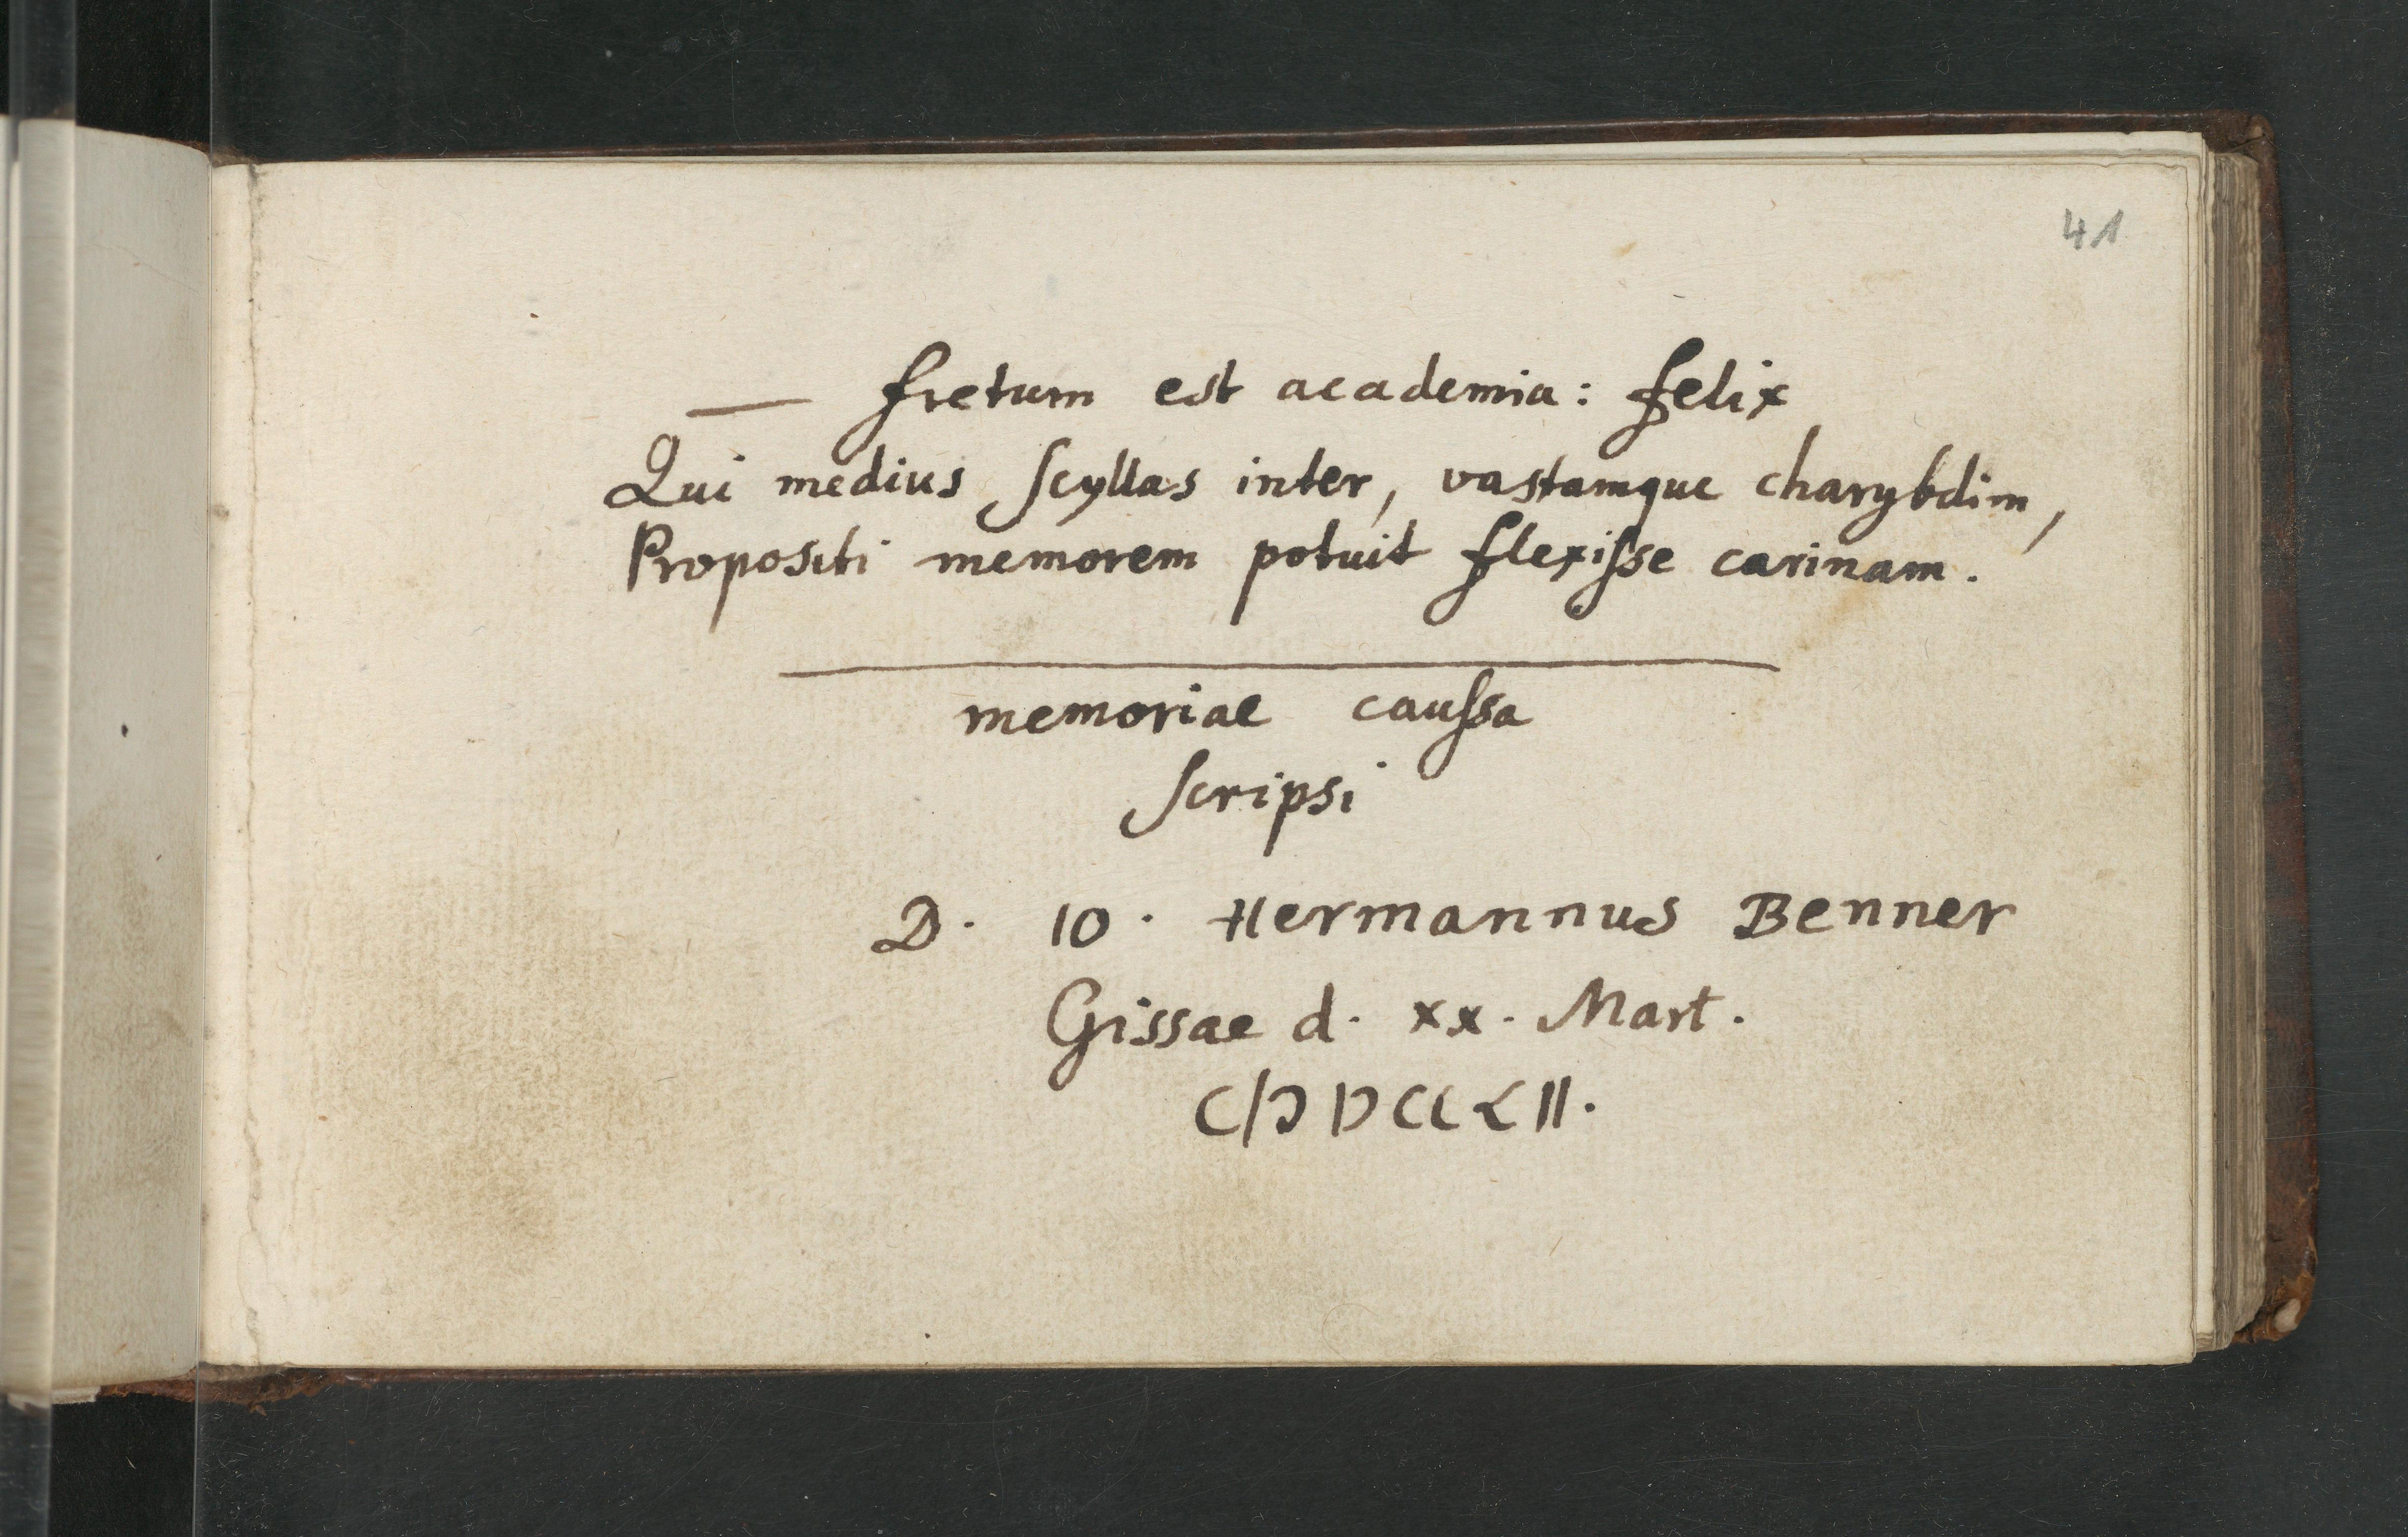 41
— fretum est academia: felix
Qui medius ſcyllas inter, vastamque charybdim,
Propositi memorem potuit flexiſse carinam.
memoriae cauſsa
ſcripsi
D. IO. Hermannus Benner
Gissae d. xx. Mart.
CIↃ IↃ CC L II.